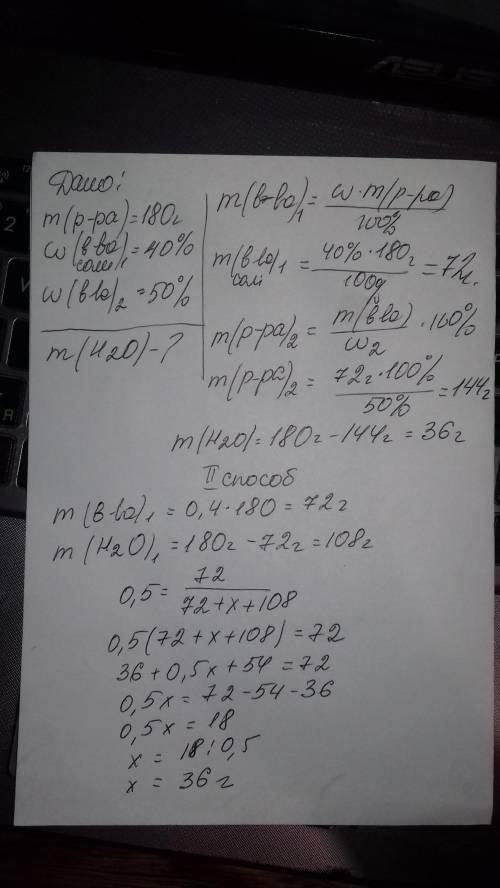 ASUS
Дано:
m(р-ра)=180г
ω(в-ва)₁=40%
соли
ω(в-ва)₂=50%
m(H2O)-?
m(в-ва)₁= ω·m(р-ра)
100%
m(в-ва)₁ = 40%·180г = 72г.
соли 100%
m(р-ра)₂= m(в-ва) · 100%
ω₂
m(р-ра)₂ = 72г·100% =144г
50%
m(H2O)=180г-144г = 36г
II способ
m(в-ва)₁ = 0,4·180=72г
m(H2O)₁=180г-72г=108г
0,5= 72
72+x+108
0,5(72+x+108)=72
36+0,5x+54=72
0,5x=72-54-36
0,5x = 18
x = 18:0,5
x = 36г